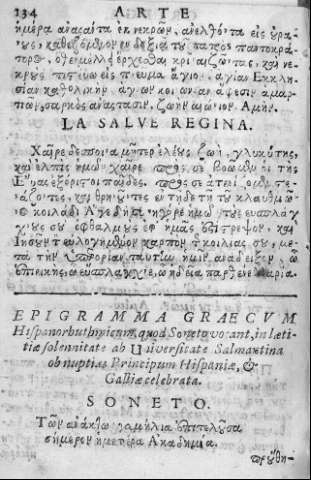 134 ARTE
ἡμέρᾳ ἀναστάντα ἐκ νεκρῶν, ἀνελθόντα εἰς
καθεζόμενον ἐν δεξιᾷ τοῦ πατρὸς παντοκρά-
ὅθεν μέλλει ἔρχεσθαι κρῖναι ζῶντας, καὶ νε-
κρούς πιστεύω εἰς πνεῦμα ἅγιον. ἁγίαν Ἐκκλη-
σίαν καθολικὴν ἁγίων κοινωνίαν ἄφεσιν ἁμαρ-
σαρκὸς ἀνάστασιν, ζωὴν αἰώνιον Ἀμήν.
LA SALVE REGINA.
Χαῖρε δέσποινα μῆτερ ἐλέους ζωὴ, γλυκύτης,
καὶ ἐλπὶς ἡμῶν χαῖρε πρὸς σὲ βοῶμεν οἱ τῆς
Εὔας ἐξόριστοι παῖδες. πρὸς σὲ
ἐν τῇδε τῇ τοῦ κλαυθμῶ-
κοιλάδι
ὀφθαλμοὺς ἐφ' ἡμᾶς ἐπίστρεψον, καὶ
Ἰησοῦν εὐλογημένον καρπὸν τῆς κοιλίας σου, με-
τὰ τὴν ἐξορίαν ταύτην ἡμῖν ἀνάδειξον ὦ
ἐπιεικὴς, ὦ εὔσπλαγχνε, ὦ ἡδεῖα παρθένε Μαρία.
EPIGRAMMA GRAECVM
Hispanorhuthmicum, quod Soneto vocant, in lœti-
tiæ solennitate ab Universitate Salmantina
ob nuptias Principum Hispaniæ, &
Galliæ celebrata.
SONETO.
Τῶν γαμήλια ἐπιτελοῦσα
σήμερον ἡμετέρα Ἀκαδημία.